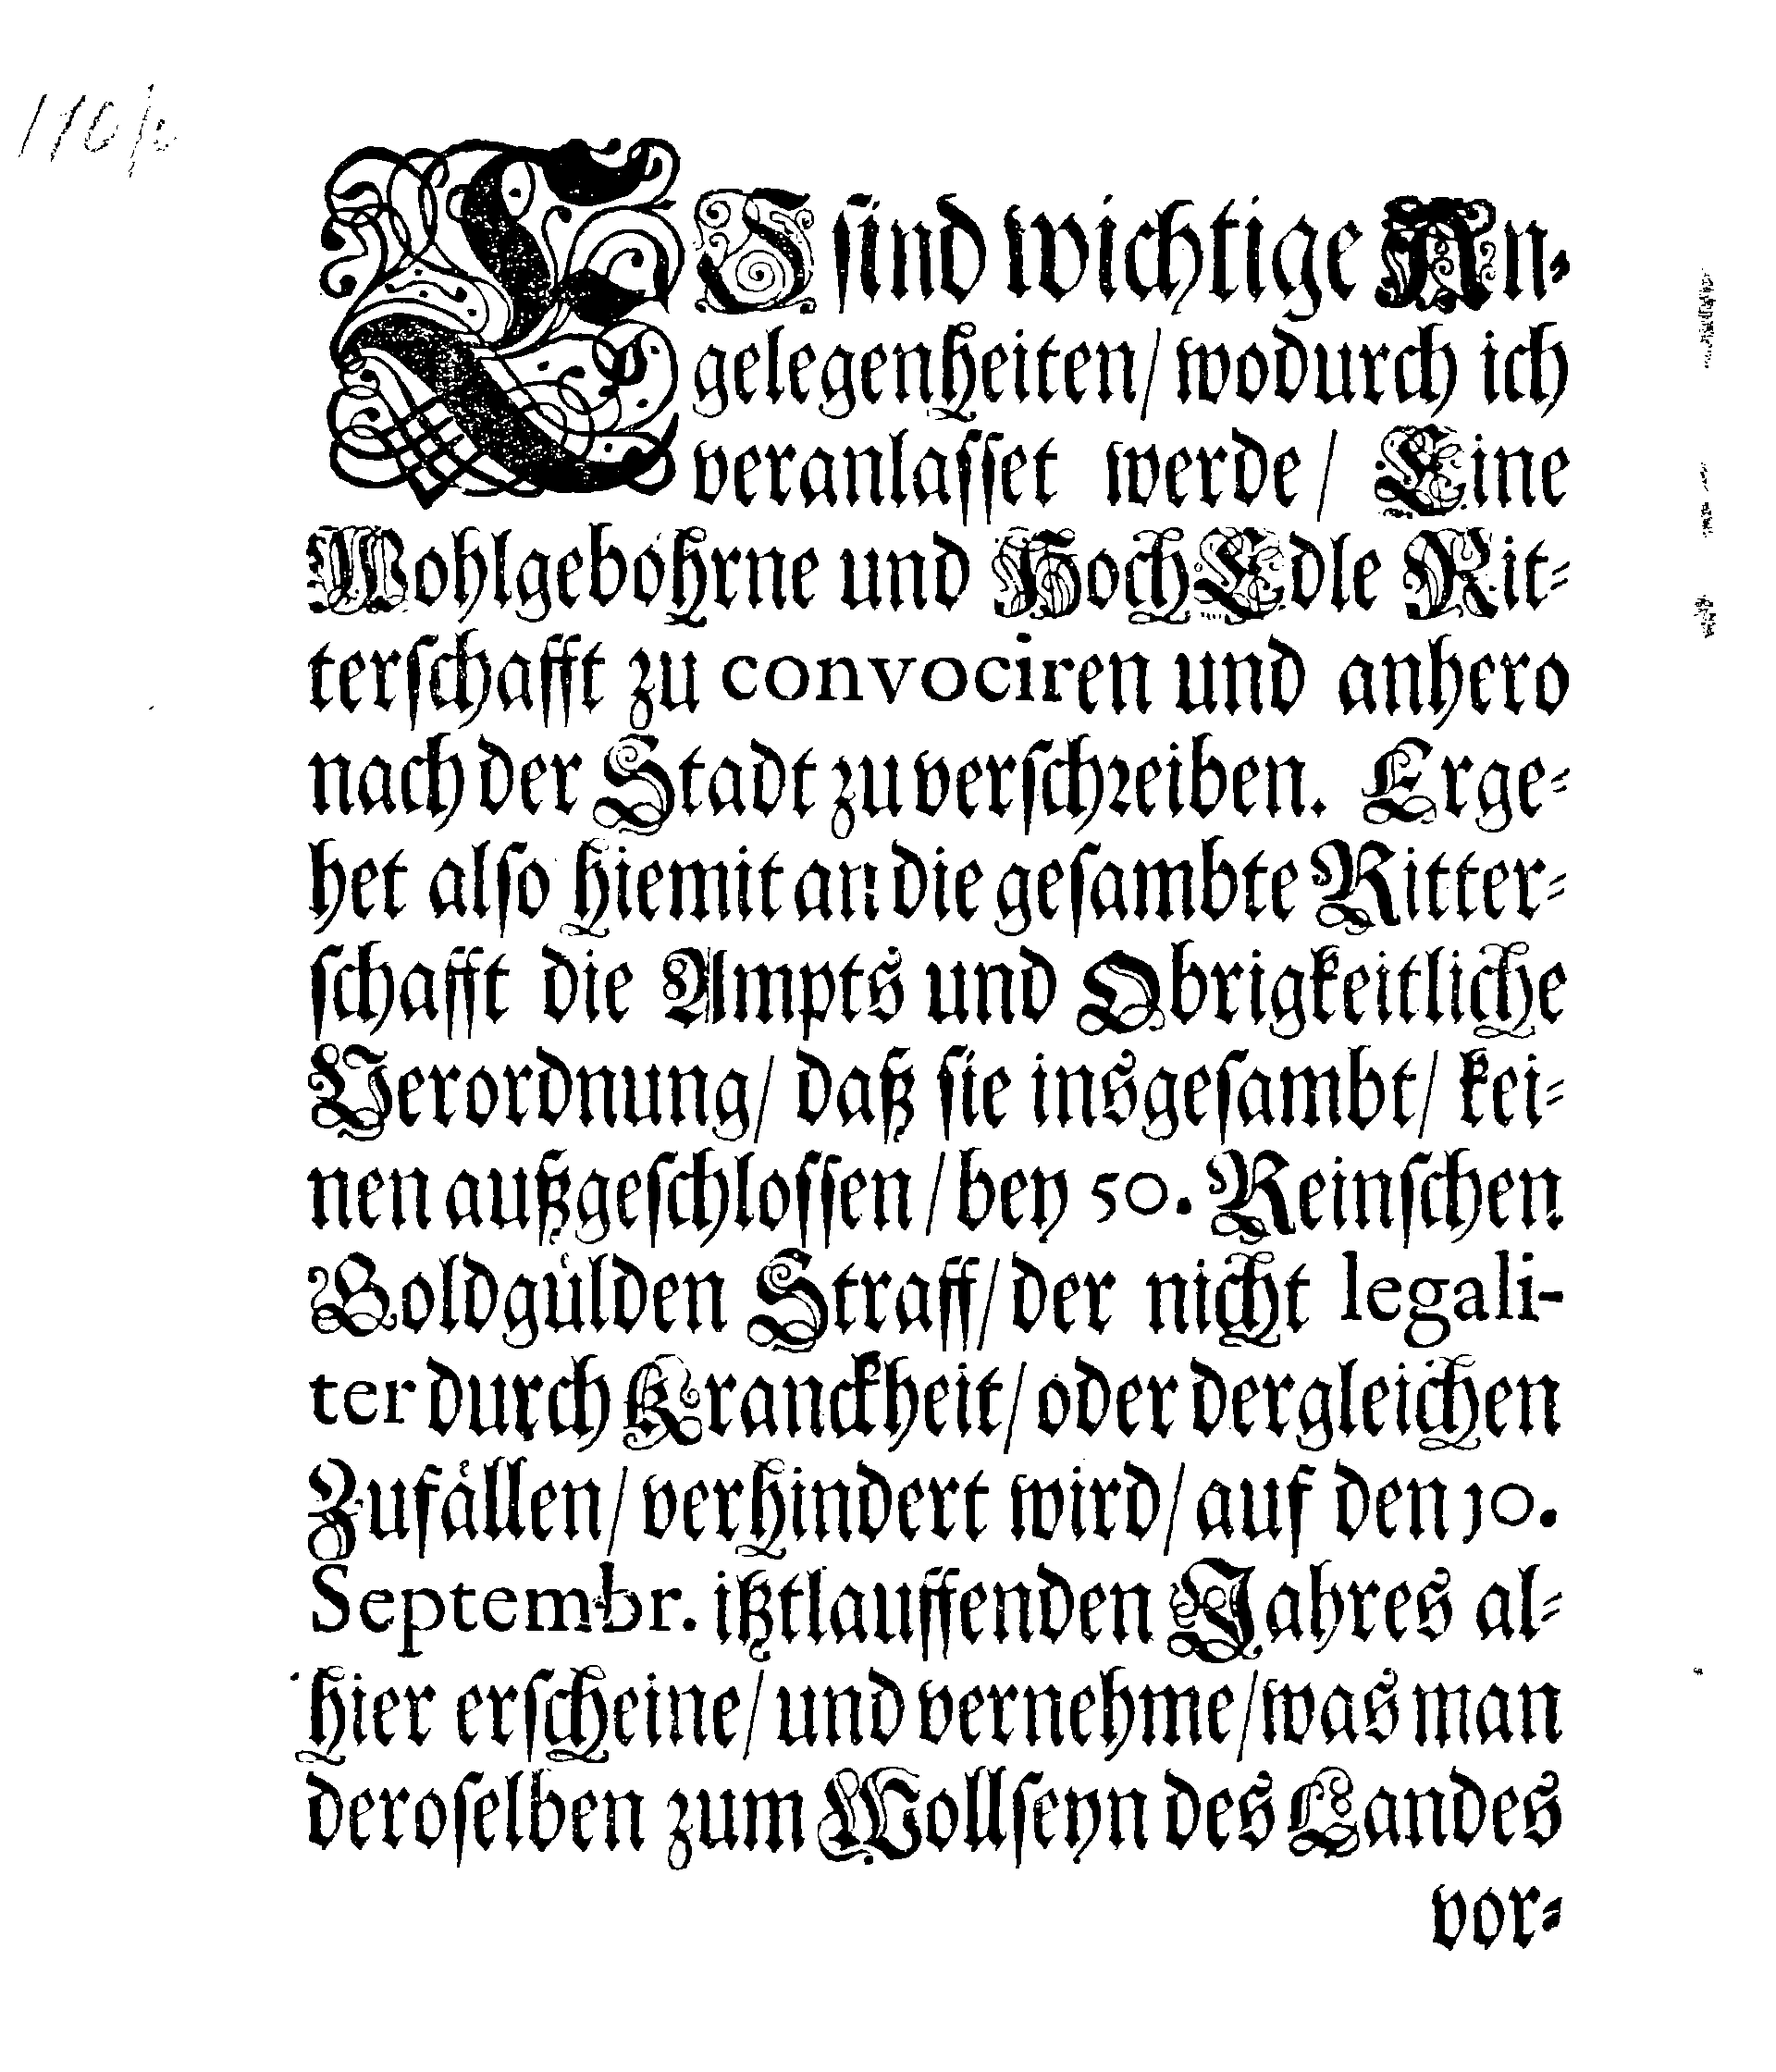 110/6
ES sind wichtige An-
gelegenheiten/ wodurch ich
veranlasset werde/ Eine
Wohlgebohrne und HochEdle Rit-
terschafft zu convociren und anhero
nach der Stadt zu verschreiben. Erge-
het also hiemit an die gesambte Ritter-
schafft die Ampts und Obrigkeitliche
Verordnung/ daß sie insgesambt/ kei-
nen außgeschlossen/ bey 50. Reinschen
Goldgülden Straff/ der nicht legali-
ter durch Kranckheit/ oder dergleichen
Zufällen/ verhindert wird/ auf den 10.
Septembr. itztlauffenden Jahres al-
hier erscheine/ und vernehme/ was man
deroselben zum Wollseyn des Landes
vor-